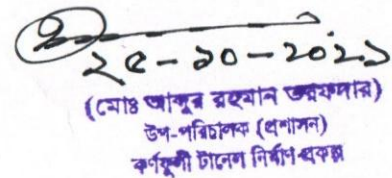 ২৫-১০-২০২১
(মোঃ আব্দুর রহমান তরফদার)
উপ-পরিচালক (প্রশাসন)
কর্ণফুলী টানেল নির্মাণ প্রকল্প